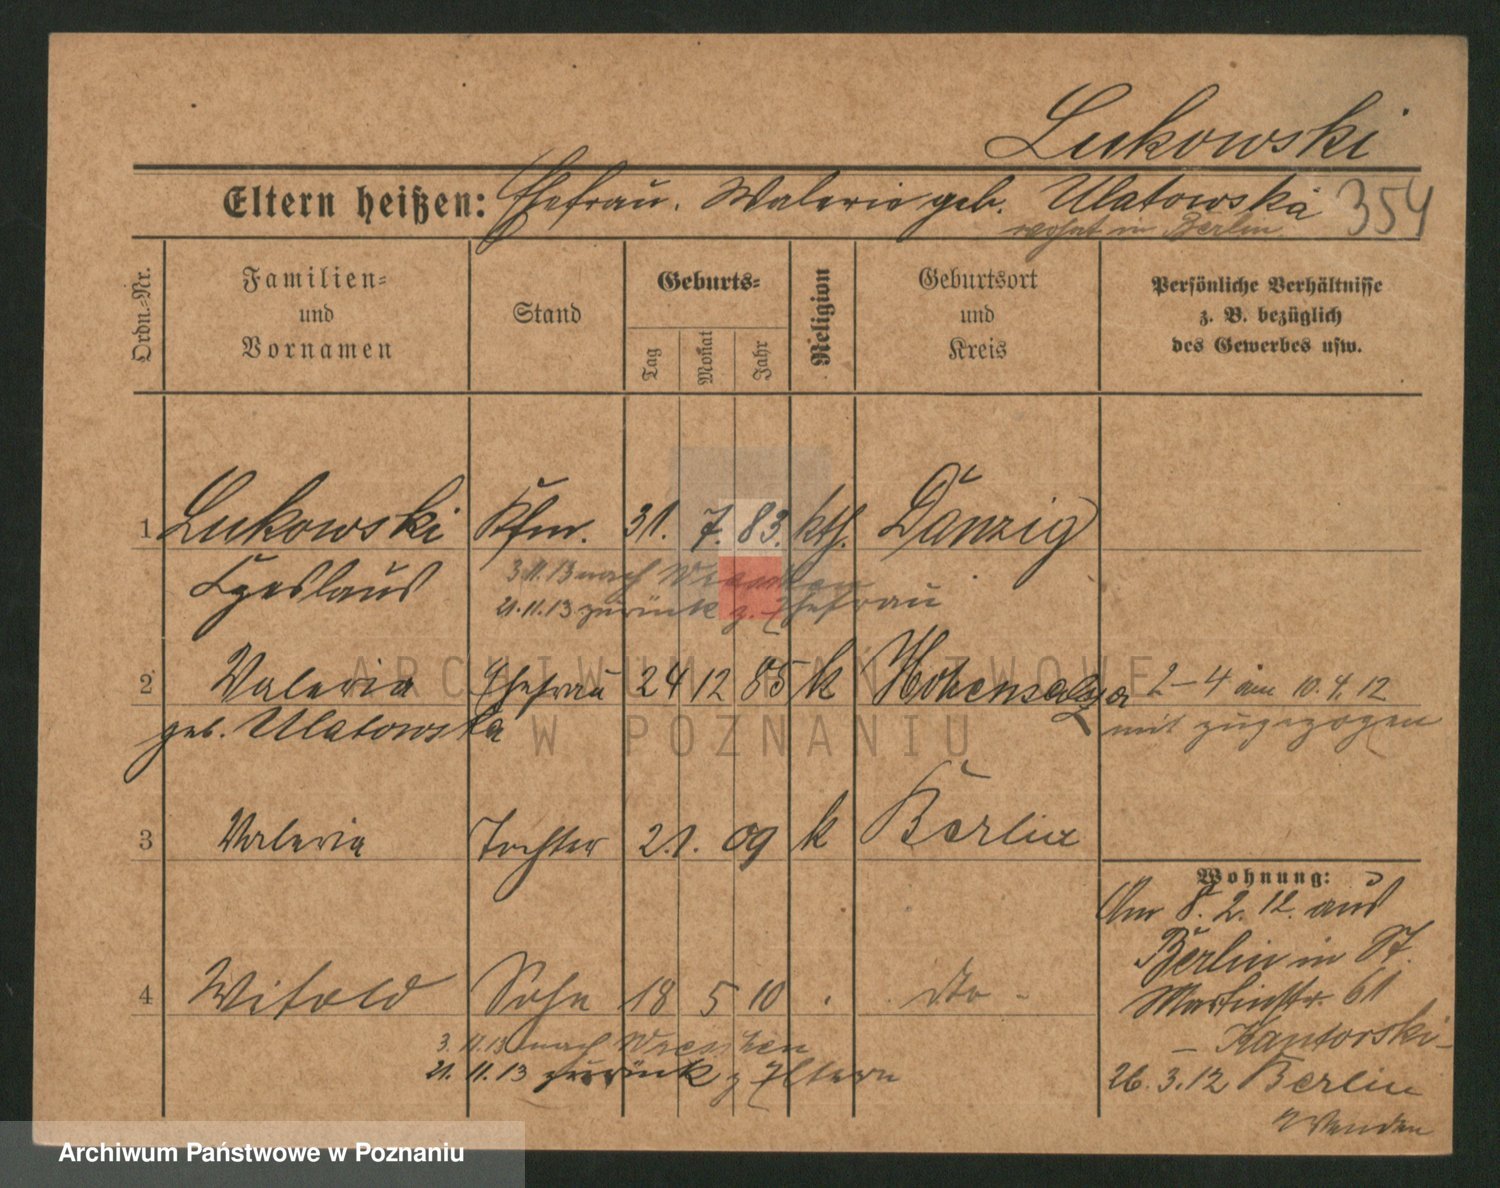 Lukowski
Eltern heißen: Ehefrau. Walerie geb. Ulatowska 354
wohnt in Berlin
Ordn.-Nr.
Familien-
und
Vornamen
Stand
Geburts-
Tag
Monat
Jahr
Religion
Geburtsort
und
Kreis
Persönliche Verhältnisse
z. B. bezüglich
des Gewerbes usw.
1 Lukowski Kfm. 31. 7. 83. kth. Danzig
Czeslaus
3.11.13 nach Wreschen
21.11.13 zurück z. Ehefrau
2 Valeria Ehefrau 24 12 85 k Hohensalza 2–4 am 10.4.12
geb. Ulatowska mit zugezogen
3 Valeria Tochter 2.1. 09 k Berlin
Wohnung:
Am 8.2.12. aus
Berlin in St.
Martinstr. 61
– Kantorski –
26.3.12 Berlin
Wenden
4 Witold Sohn 18 5 10 . dto -
3.11.13 nach Wreschen
21.11.13 zurück z Eltern
ARCHIWUM PAŃSTWOWE
W POZNANIU
Archiwum Państwowe w Poznaniu